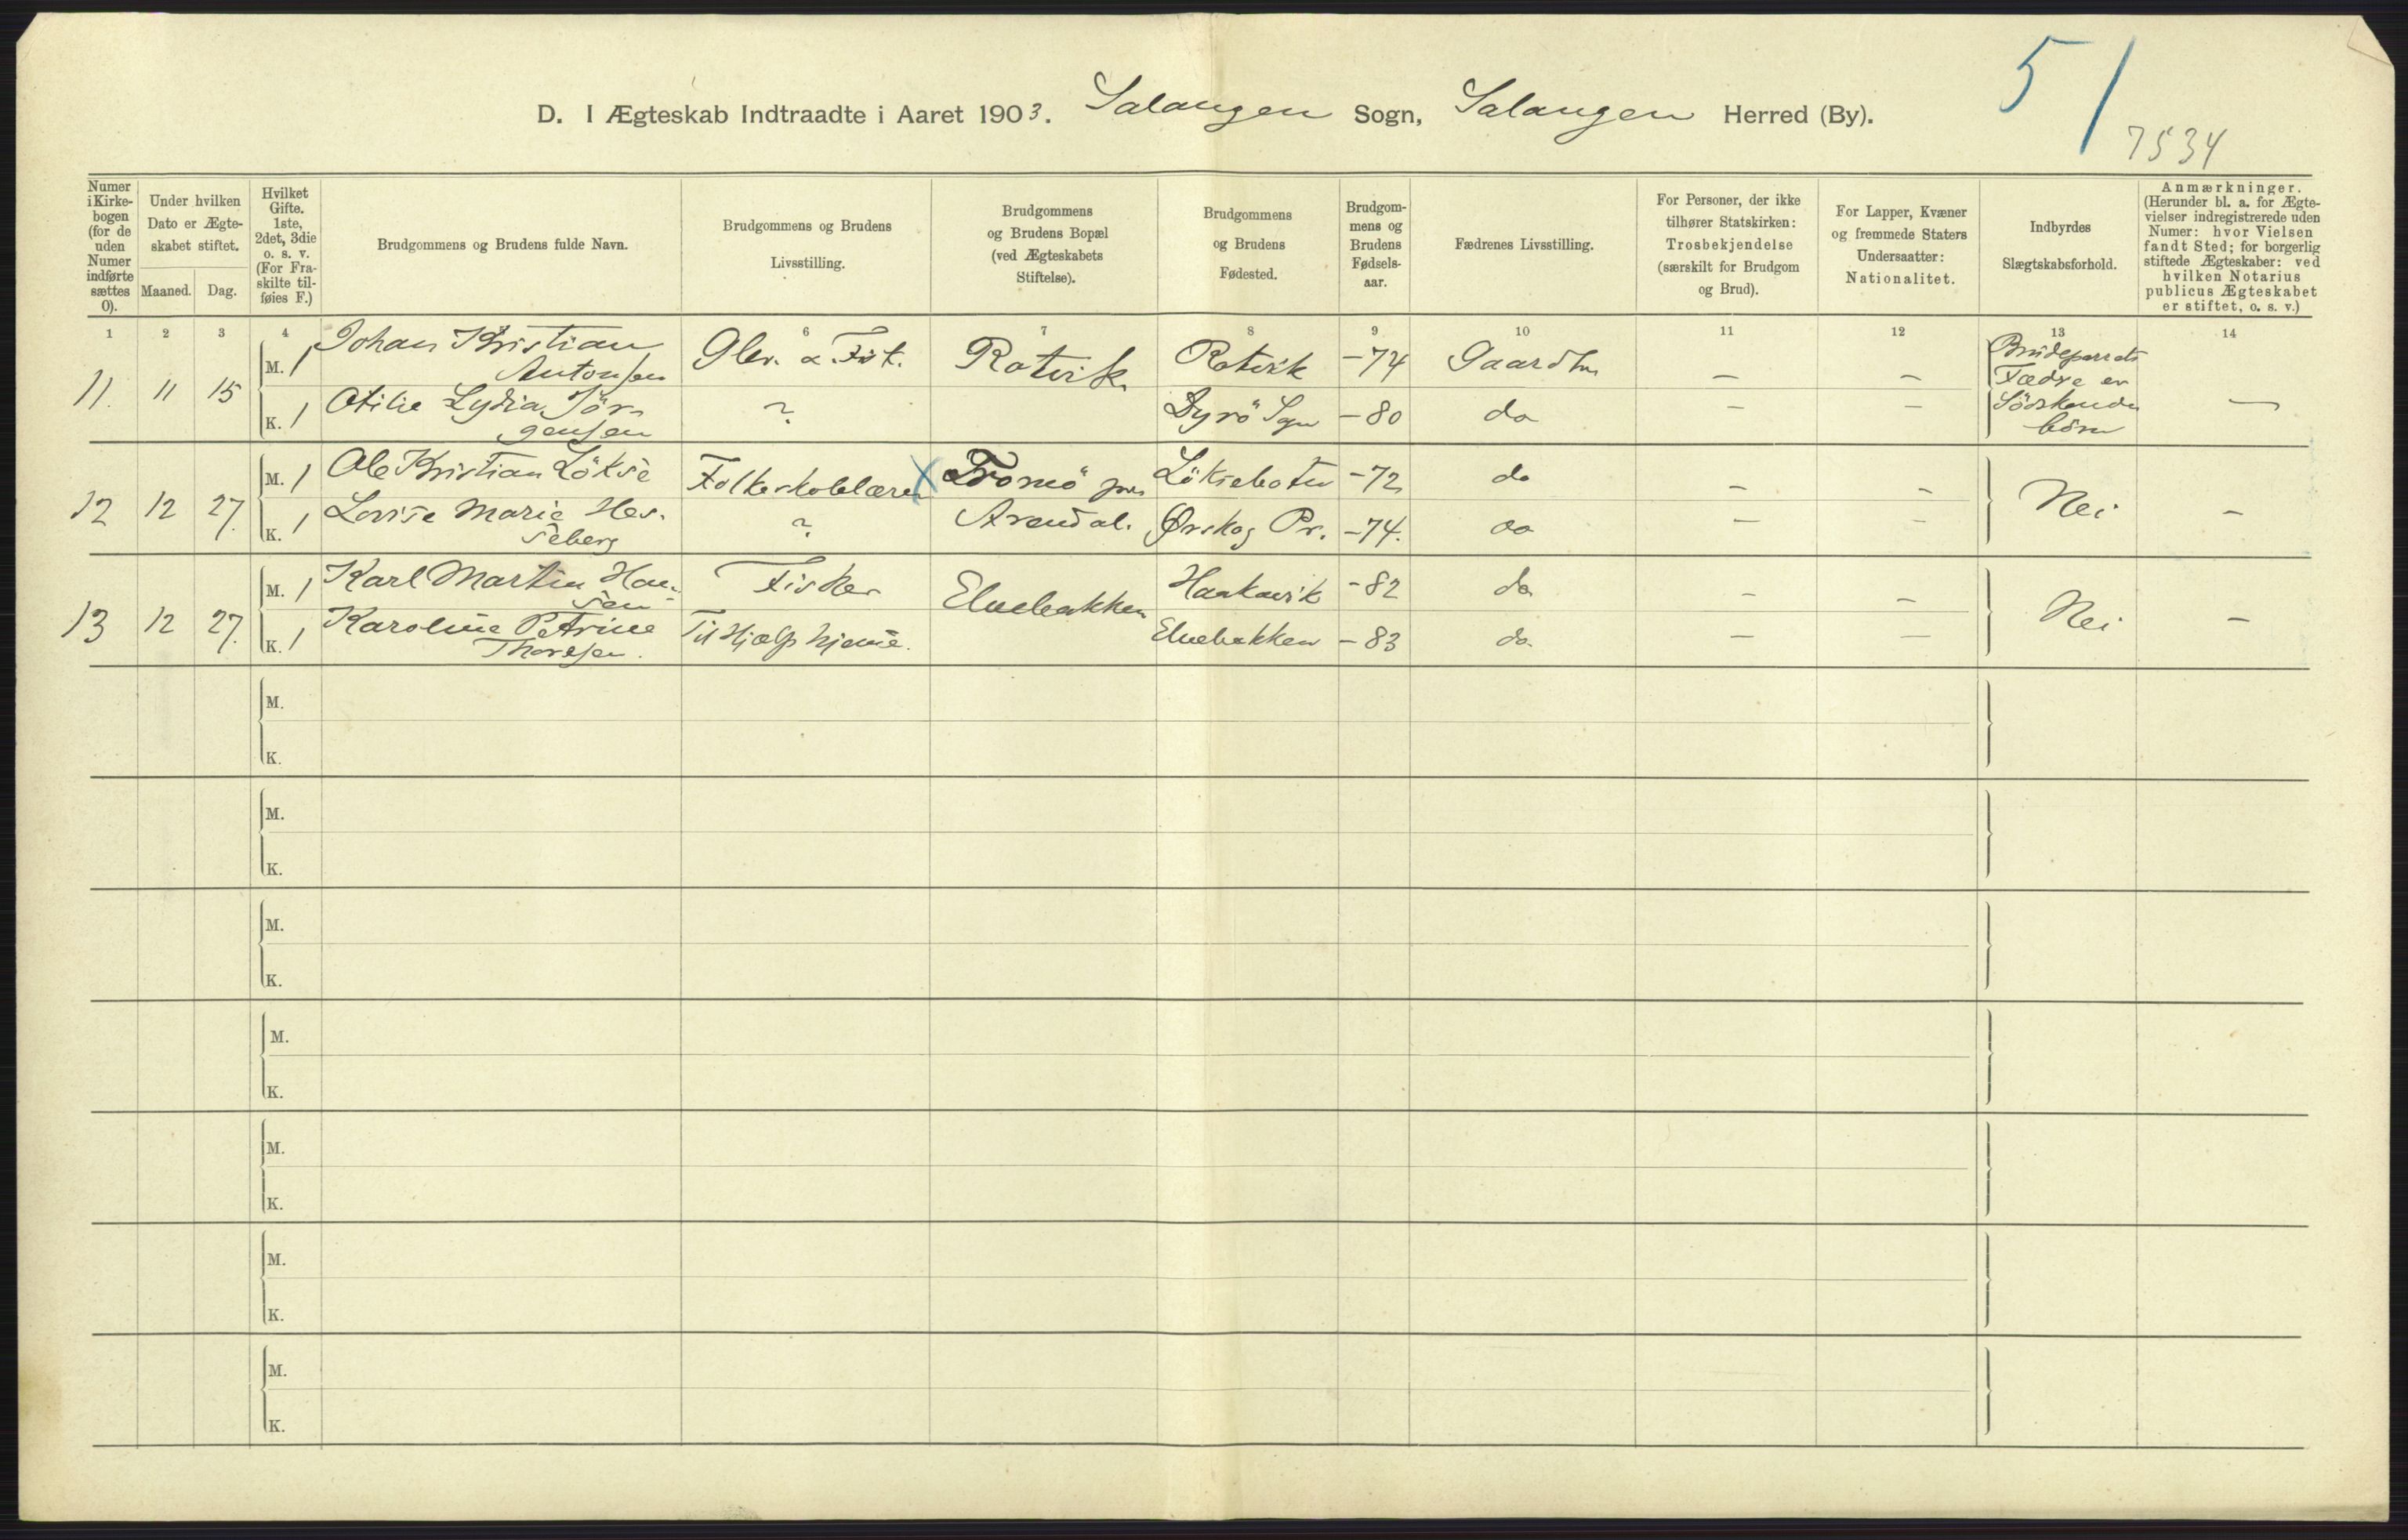 51
7534
D. I Ægteskab Indtraadte i Aaret 1903. Salangen Sogn, Salangen Herred (By).
Numer i Kirke-bogen (for de uden Numer indførte sættes 0).
Under hvilken Dato er Ægte-skabet stiftet.
Maaned. Dag.
Hvilket Gifte. 1ste, 2det, 3die o. s. v. (For Fra-skilte til-føies F.)
Brudgommens og Brudens fulde Navn.
Brudgommens og Brudens Livsstilling.
Brudgommens og Brudens Bopæl (ved Ægteskabets Stiftelse).
Brudgommens og Brudens Fødested.
Brudgom-mens og Brudens Fødsels-aar.
Fædrenes Livsstilling.
For Personer, der ikke tilhører Statskirken: Trosbekjendelse (særskilt for Brudgom og Brud).
For Lapper, Kvæner og fremmede Staters Undersaatter: Nationalitet.
Indbyrdes Slægtskabsforhold.
Anmærkninger. (Herunder bl. a. for Ægte-vielser indregistrerede uden Numer: hvor Vielsen fandt Sted; for borgerlig stiftede Ægteskaber: ved hvilken Notarius publicus Ægteskabet er stiftet, o. s. v.)
1 2 3 4 6 7 8 9 10 11 12 13 14
11. 11 15 M. 1 Johan Kristian Antonsen Rotvik Rotvik -74 — — Brudeparrets Fædre er Södskende börn —
K. 1 Otilie Lydia Jörgensen ? Dyrö Sogn -80 do — —
12 12 27. M. 1 Ole Kristian Lökse Folkeskolelærer X Tromö pr. Arendal. Löksebotn -72 do — — Nei —
K. 1 Lovise Marie Hesseberg ? Ørskog Pr. -74. do — —
13 12 27. M. 1 Karl Martin Hansen Fisker Elvebakken Haakavik -82 do — — Nei —
K. 1 Karoline Petrine Thoresen. Til Hjælp hjeme. Elvebakken -83 do. — —
M.
K.
M.
K.
M.
K.
M.
K.
M.
K.
M.
K.
M.
K.